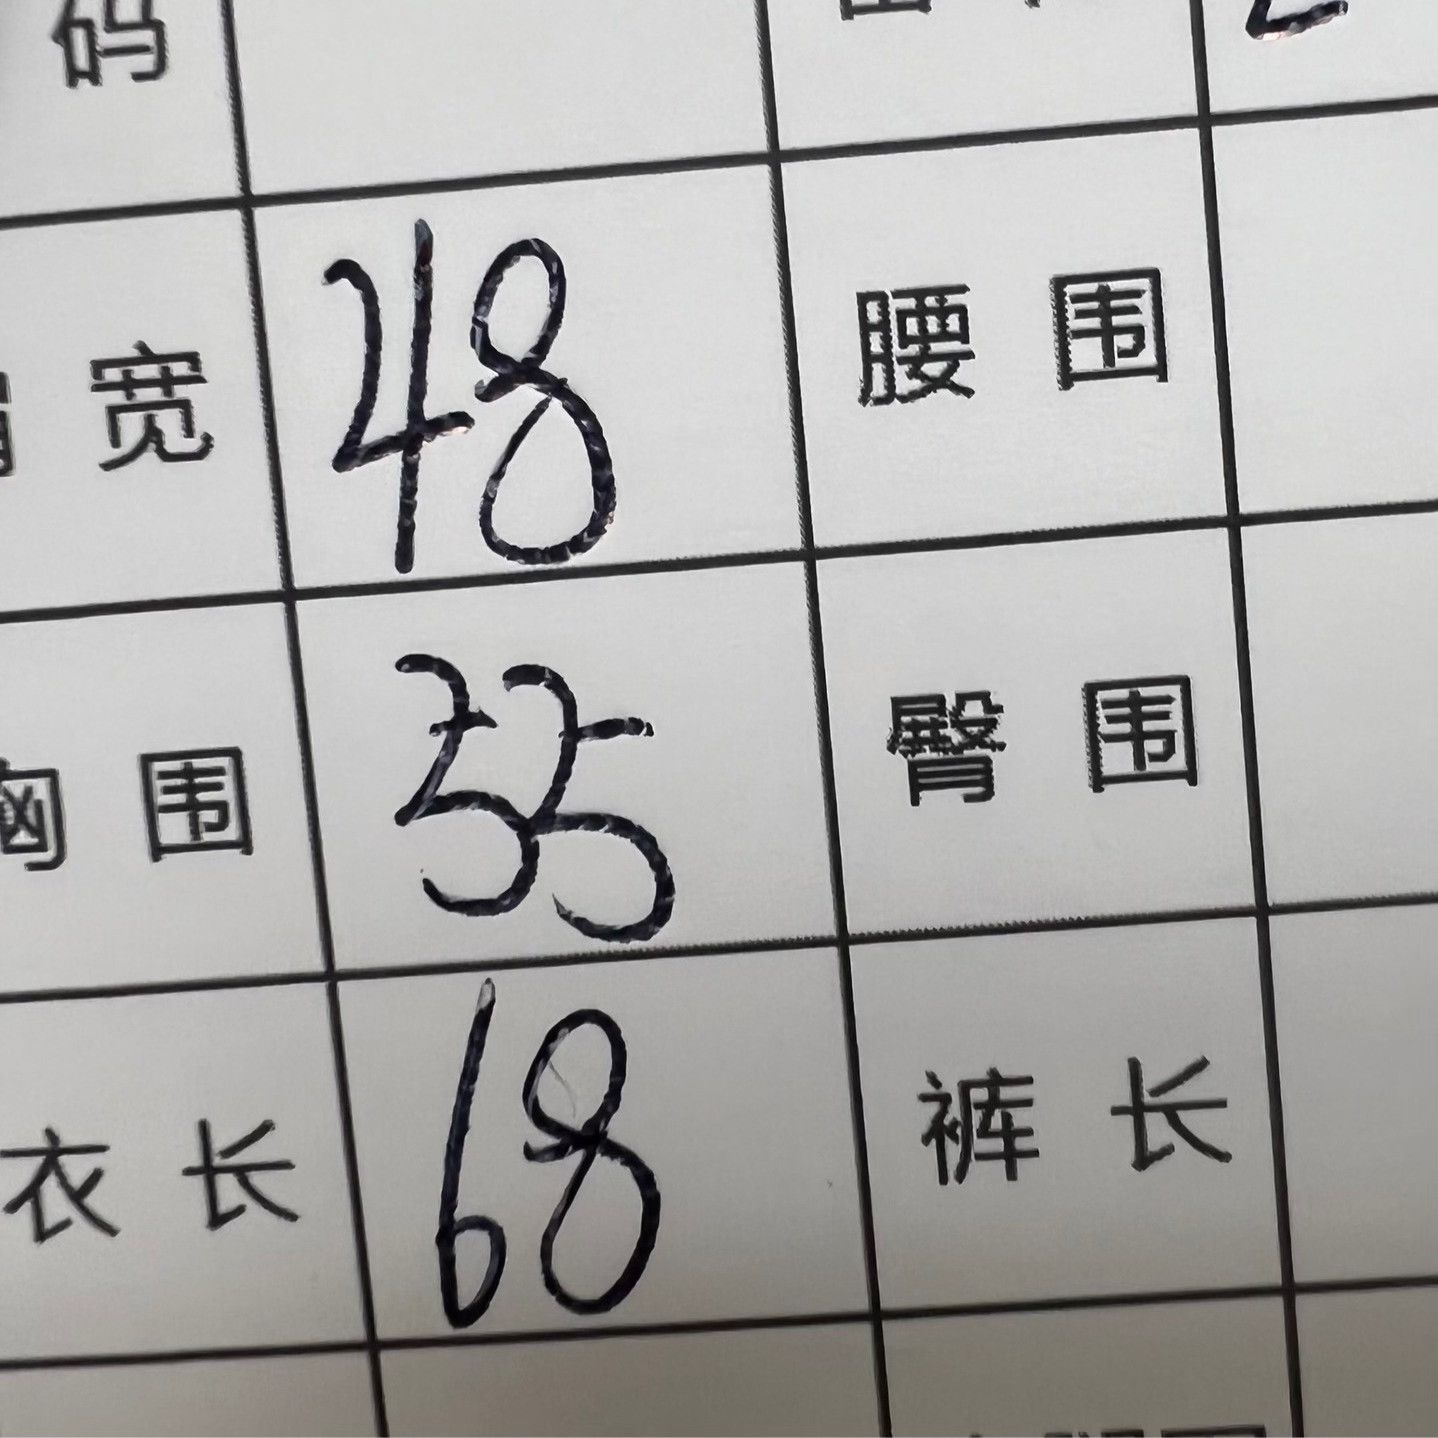 码
肩 宽 48 腰 围
胸 围 55 臀 围
衣 长 68 裤 长